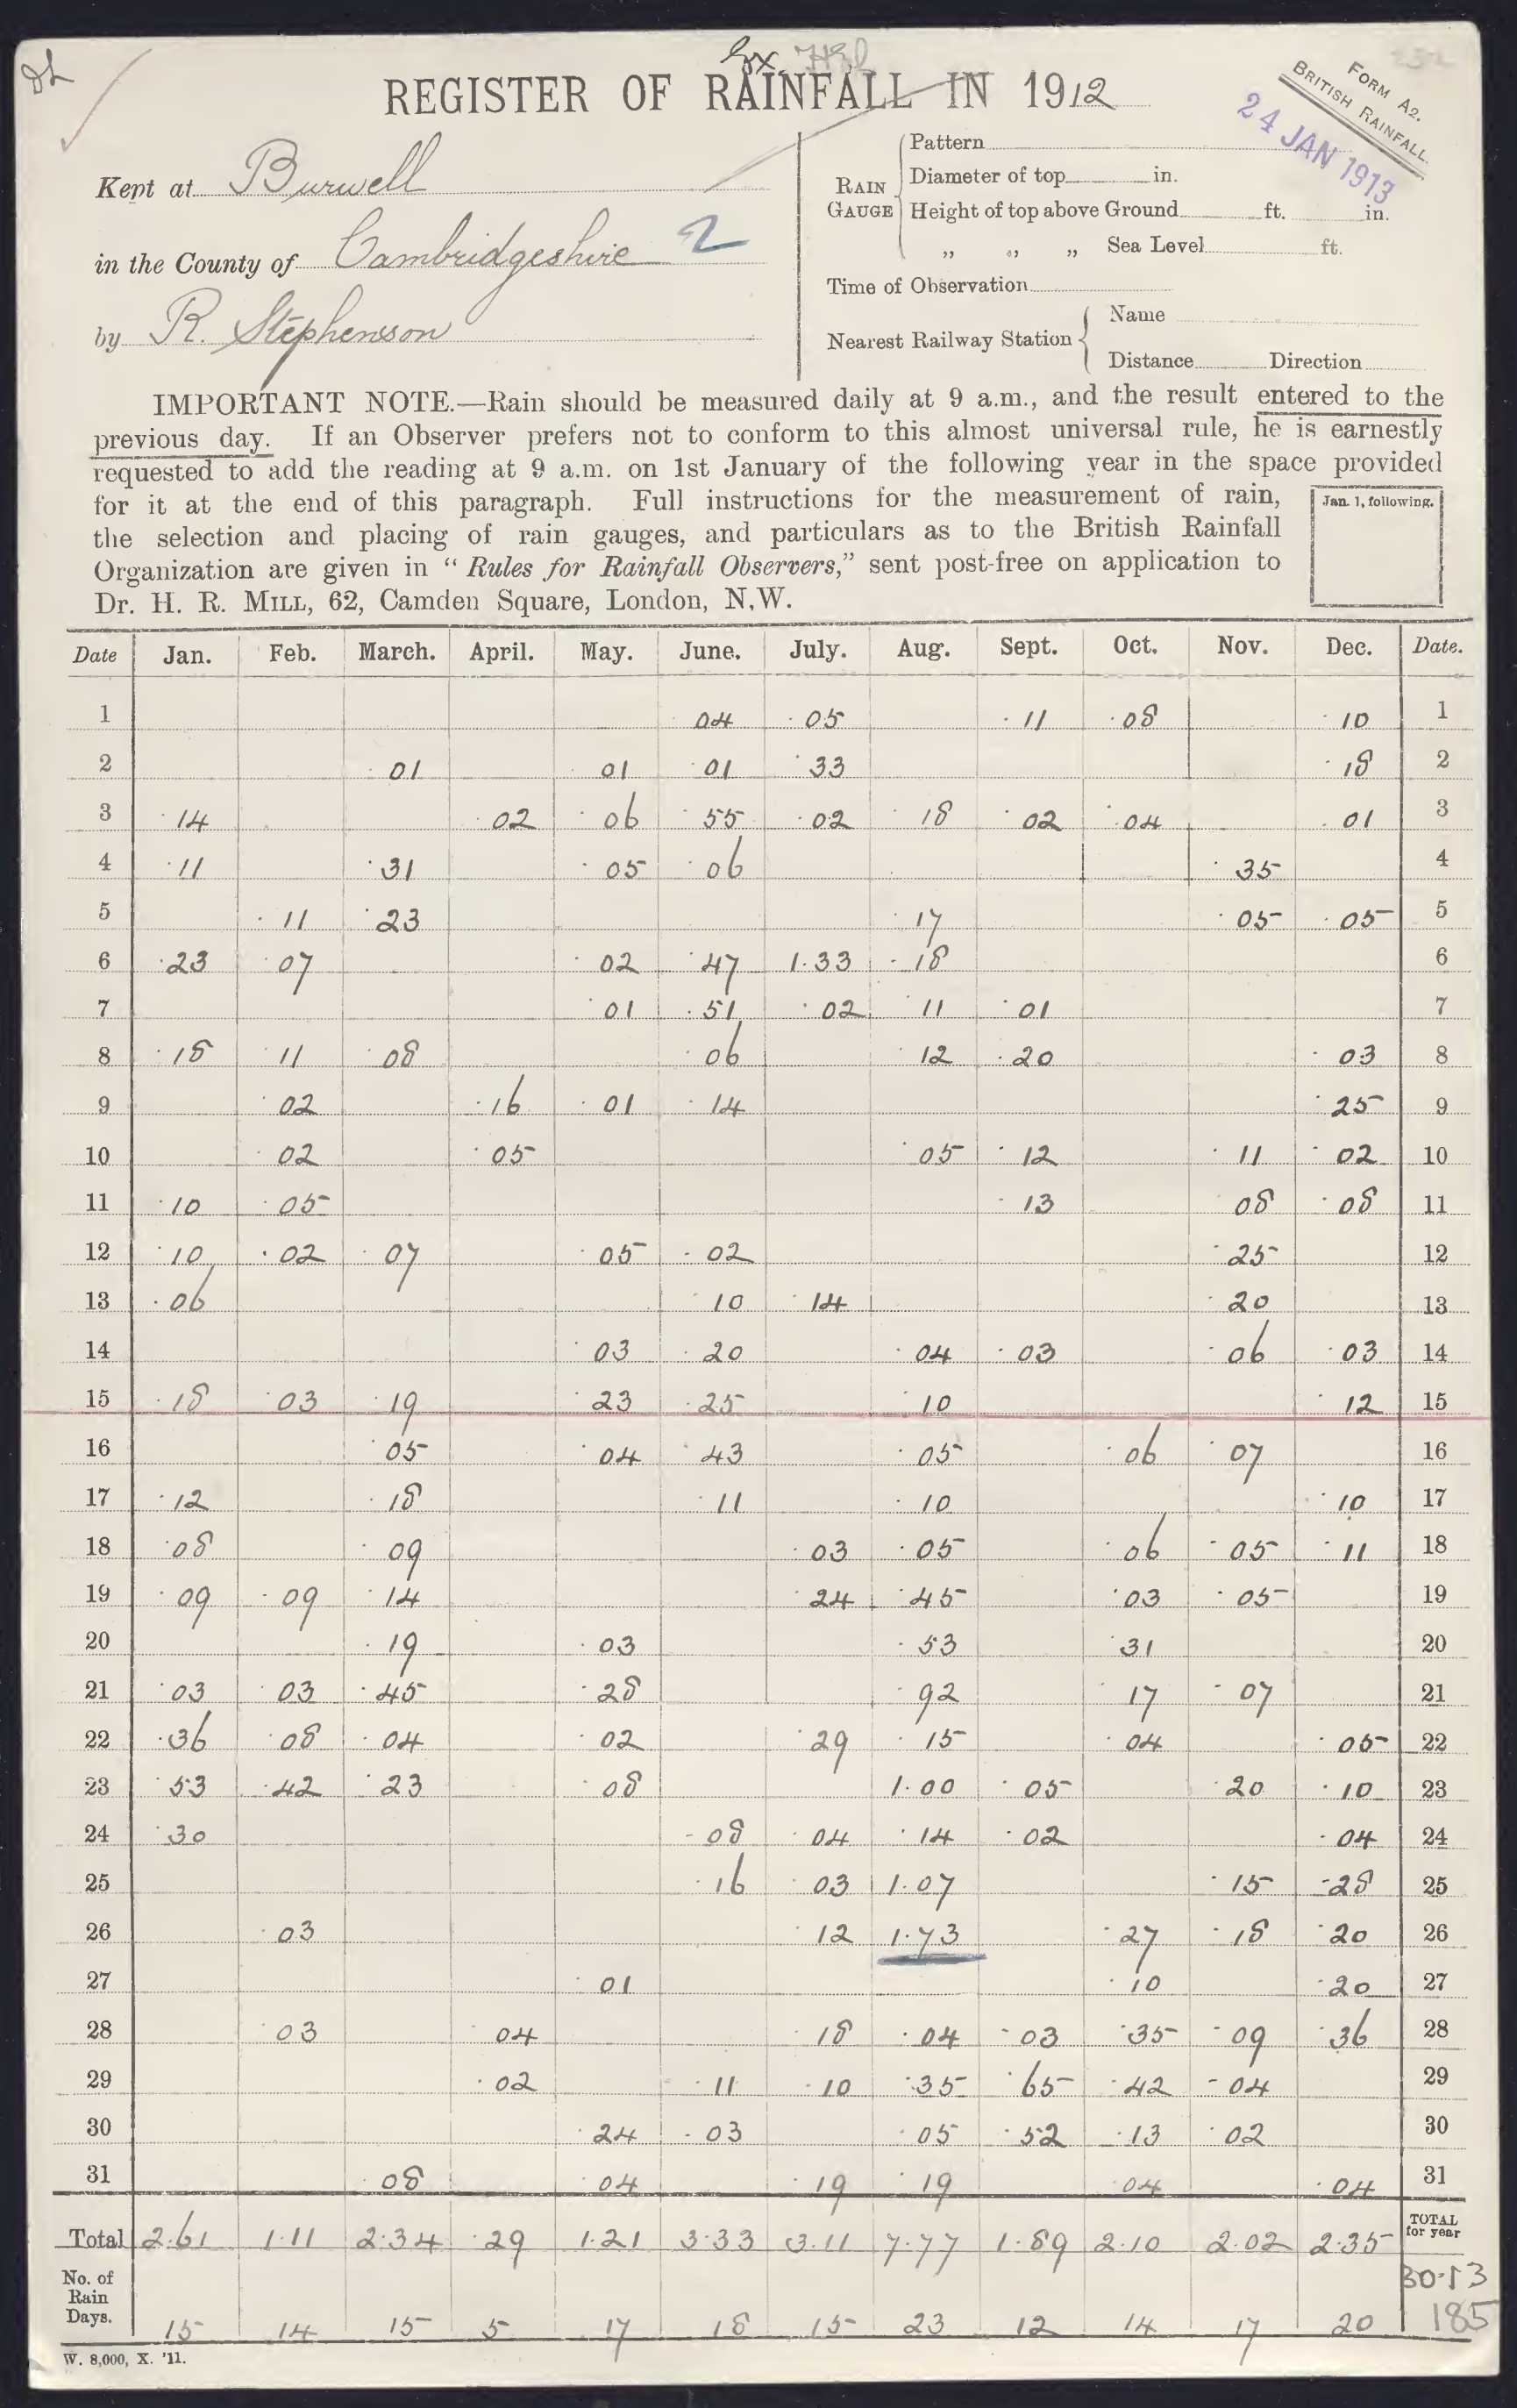 DL
Ex
REGISTER OF RAINFALL IN 1912
FORM A2.
BRITISH RAINFALL.
24 JAN 1913
Kept at Burwell
in the County of Cambridgeshire 2
by R. Stephenson
RAIN GAUGE
Pattern
Diameter of top in.
Height of top above Ground ft. in.
„ „ „ Sea Level ft.
Time of Observation
Nearest Railway Station
Name
Distance Direction
IMPORTANT NOTE.—Rain should be measured daily at 9 a.m., and the result entered to the
previous day. If an Observer prefers not to conform to this almost universal rule, he is earnestly
requested to add the reading at 9 a.m. on 1st January of the following year in the space provided
for it at the end of this paragraph. Full instructions for the measurement of rain,
the selection and placing of rain gauges, and particulars as to the British Rainfall
Organization are given in “Rules for Rainfall Observers,” sent post-free on application to
Dr. H. R. MILL, 62, Camden Square, London, N.W.
Jan. 1, following.
Date Jan. Feb. March. April. May. June. July. Aug. Sept. Oct. Nov. Dec. Date.
1 ·04 ·05 ·11 ·08 ·10 1
2 ·01 ·01 ·01 ·33 ·18 2
3 ·14 ·02 ·06 ·55 ·02 ·18 ·02 ·04 ·01 3
4 ·11 ·31 ·05 ·06 ·35 4
5 ·11 ·23 ·17 ·05 ·05 5
6 ·23 ·07 ·02 ·47 1·33 ·18 6
7 ·01 ·51 ·02 ·11 ·01 7
8 ·18 ·11 ·08 ·06 ·12 ·20 ·03 8
9 ·02 ·16 ·01 ·14 ·25 9
10 ·02 ·05 ·05 ·12 ·11 ·02 10
11 ·10 ·05 ·13 ·08 ·08 11
12 ·10 ·02 ·07 ·05 ·02 ·25 12
13 ·06 ·10 ·14 ·20 13
14 ·03 ·20 ·04 ·03 ·06 ·03 14
15 ·18 ·03 ·19 ·23 ·25 ·10 ·12 15
16 ·05 ·04 ·43 ·05 ·06 ·07 16
17 ·12 ·18 ·11 ·10 ·10 17
18 ·08 ·09 ·03 ·05 ·06 ·05 ·11 18
19 ·09 ·09 ·14 ·24 ·45 ·03 ·05 19
20 ·19 ·03 ·53 ·31 20
21 ·03 ·03 ·45 ·28 ·92 ·17 ·07 21
22 ·36 ·08 ·04 ·02 ·29 ·15 ·04 ·05 22
23 ·53 ·42 ·23 ·08 1·00 ·05 ·20 ·10 23
24 ·30 ·08 ·04 ·14 ·02 ·04 24
25 ·16 ·03 1·07 ·15 ·28 25
26 ·03 ·12 1·73 ·27 ·18 ·20 26
27 ·01 ·10 ·20 27
28 ·03 ·04 ·18 ·04 ·03 ·35 ·09 ·36 28
29 ·02 ·11 ·10 ·35 ·65 ·42 ·04 29
30 ·24 ·03 ·05 ·52 ·13 ·02 30
31 ·08 ·04 ·19 ·19 ·04 ·04 31
Total 2·61 1·11 2·34 ·29 1·21 3·33 3·11 7·77 1·89 2·10 2·02 2·35 TOTAL for year
30·13
No. of Rain Days. 15 14 15 5 17 18 15 23 12 14 17 20 185
W. 8,000, X. '11.